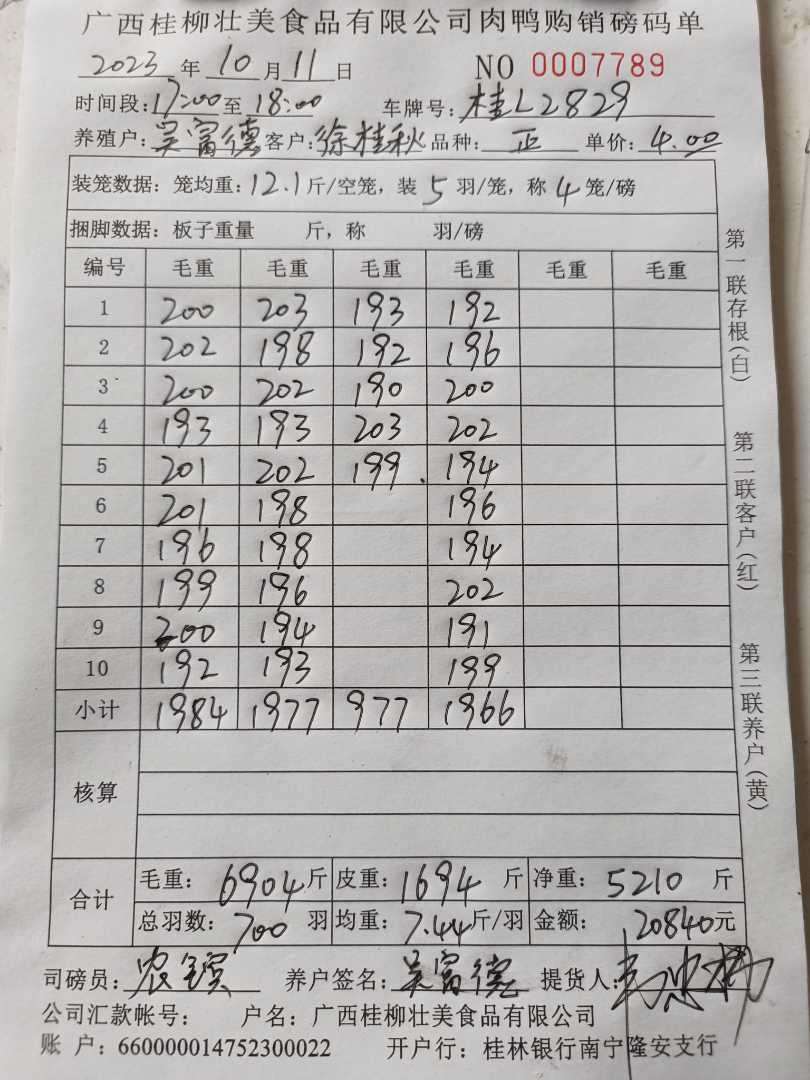 广西桂柳壮美食品有限公司肉鸭购销磅码单
2023 年 10 月 11 日 NO 0007789
时间段:17:00至18:00 车牌号:桂L2829
养殖户:吴富德 客户:徐桂秋 品种:正 单价:4.00
装笼数据:笼均重:12.1斤/空笼,装 5 羽/笼,称 4 笼/磅
捆脚数据:板子重量 斤,称 羽/磅
编号 毛重 毛重 毛重 毛重 毛重 毛重
1 200 203 193 192
2 202 198 192 196
3 200 202 190 200
4 193 193 203 202
5 201 202 199. 194
6 201 198 196
7 196 198 194
8 199 196 202
9 200 194 191
10 192 193 199
小计 1984 1977 977 1966
核算
合计
毛重: 6904斤 皮重: 1694 斤 净重: 5210 斤
总羽数: 700 羽 均重: 7.44斤/羽 金额: 20840元
司磅员: 养户签名:吴富德 提货人:
公司汇款帐号: 户名:广西桂柳壮美食品有限公司
账 户:660000014752300022 开户行:桂林银行南宁隆安支行
第一联存根(白)
第二联客户(红)
第三联养户(黄)